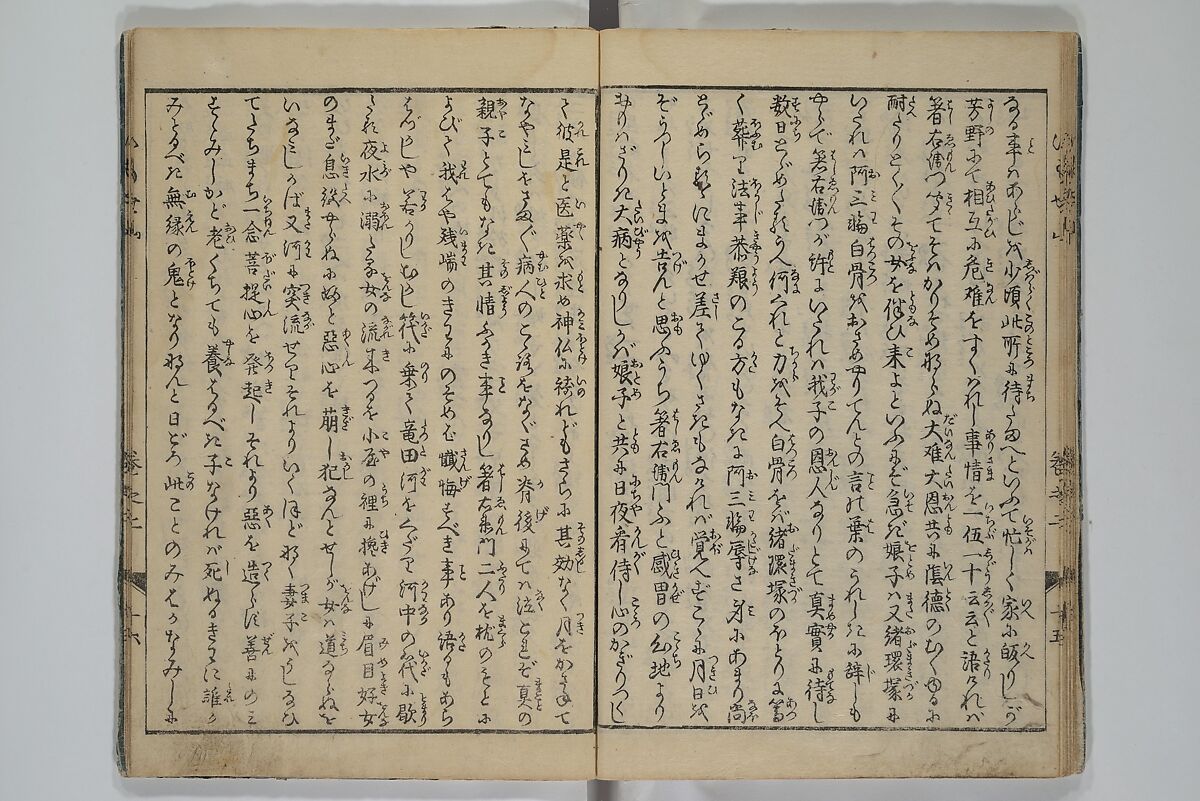 なる事はあらじを小頃此所に待給へといふて忙しく家に皈りしが
芳野にて相互に危難をすくはれし事情を一伍一十云云と語ければ
箸右衛門つゞきてそはかりそめならね大難大恩共に陰徳のむくゆるに
耐たりとくとくその女を伴ひ来よといふにぞ急ぎ娘子は又緒環塚に
いたれば阿三輪白骨ををさめやりてんとの言の葉のうれしきに辞しも
やらで箸右衛門が許にいたれば我子の恩人なりとて真實に待し
数日とゞめたるうへ何くれと力をそへ白骨をば緒環塚のほとりに篤
く葬り法事恭飯のこる方もなきに阿三輪辱さ身にあまり尚
とゞめらるゝにまかせ差てゆくさきもなければ覚へずこゝに月日を
ぞうつしいとまを告んと思ふうち箸右衛門ふと感冒の心地より
おこりざりき大病となりしかば娘子と共に日夜看侍し心のかぎりつくし
て彼是と医薬を求め神仏に祷れどもさらに其効なく月をかさねて
なやみしをさなく病人のこゝろをなぐさめ脊後にては泣くれぞ真の
親子とてもなき其情ふかき事なりし箸右衛門二人を枕のもとに
よびて我はや残喘のきはにのぞめば懺悔すべき事あり語るもあぢ
きなしや若かりしむかし筏に乗て竜田河をくだり河中の筏に歇
たる夜水に溺たる女の流来つるを小屋の裡に挽あげしに眉目好女
のまだ息絶やらねに好と惡心を萠し犯さんとせしが女は道ならぬを
いなみしかば又河に突流せりそれよりいくほどなく妻子をうしなひ
てたちまち一念菩提心を発起しそれより惡を造らず善にのみ
すゝみしかど老くちても養はるべき子なければ死ぬるきはに誰か
みとるべき無縁の鬼となりなんと日ごろ此ことのみはかなみしに